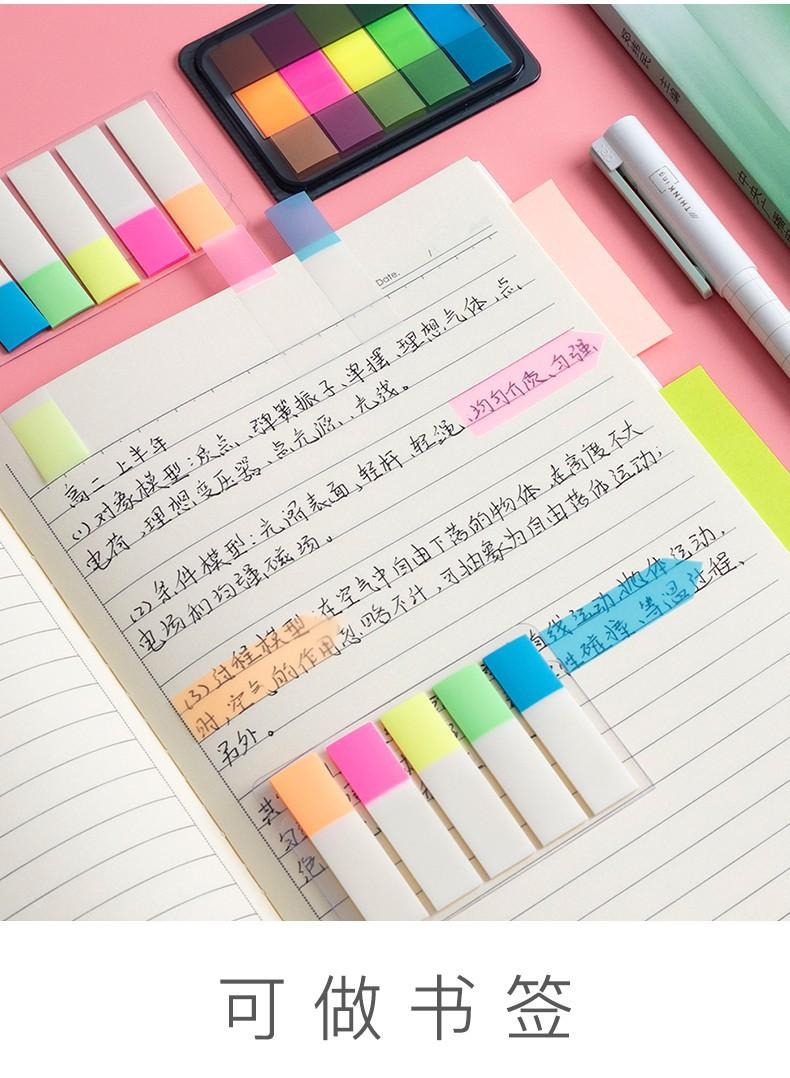 Date. /
高二上半年
(1) 对象模型:质点、弹簧振子、单摆、理想气体、点
电荷、理想变压器、点光源、光线。
(2) 条件模型:光滑表面、轻杆、轻绳、均匀介质、匀强
电场和匀强磁场。
(3) 过程模型:在空气中自由下落的物体,在高度不大
时,空气的作用忽略不计,可抽象为自由落体运动;
另外。直线运动、抛体运动、
性碰撞、等温过程、
其
匀
绝
THINK
ing
主编
可做书签